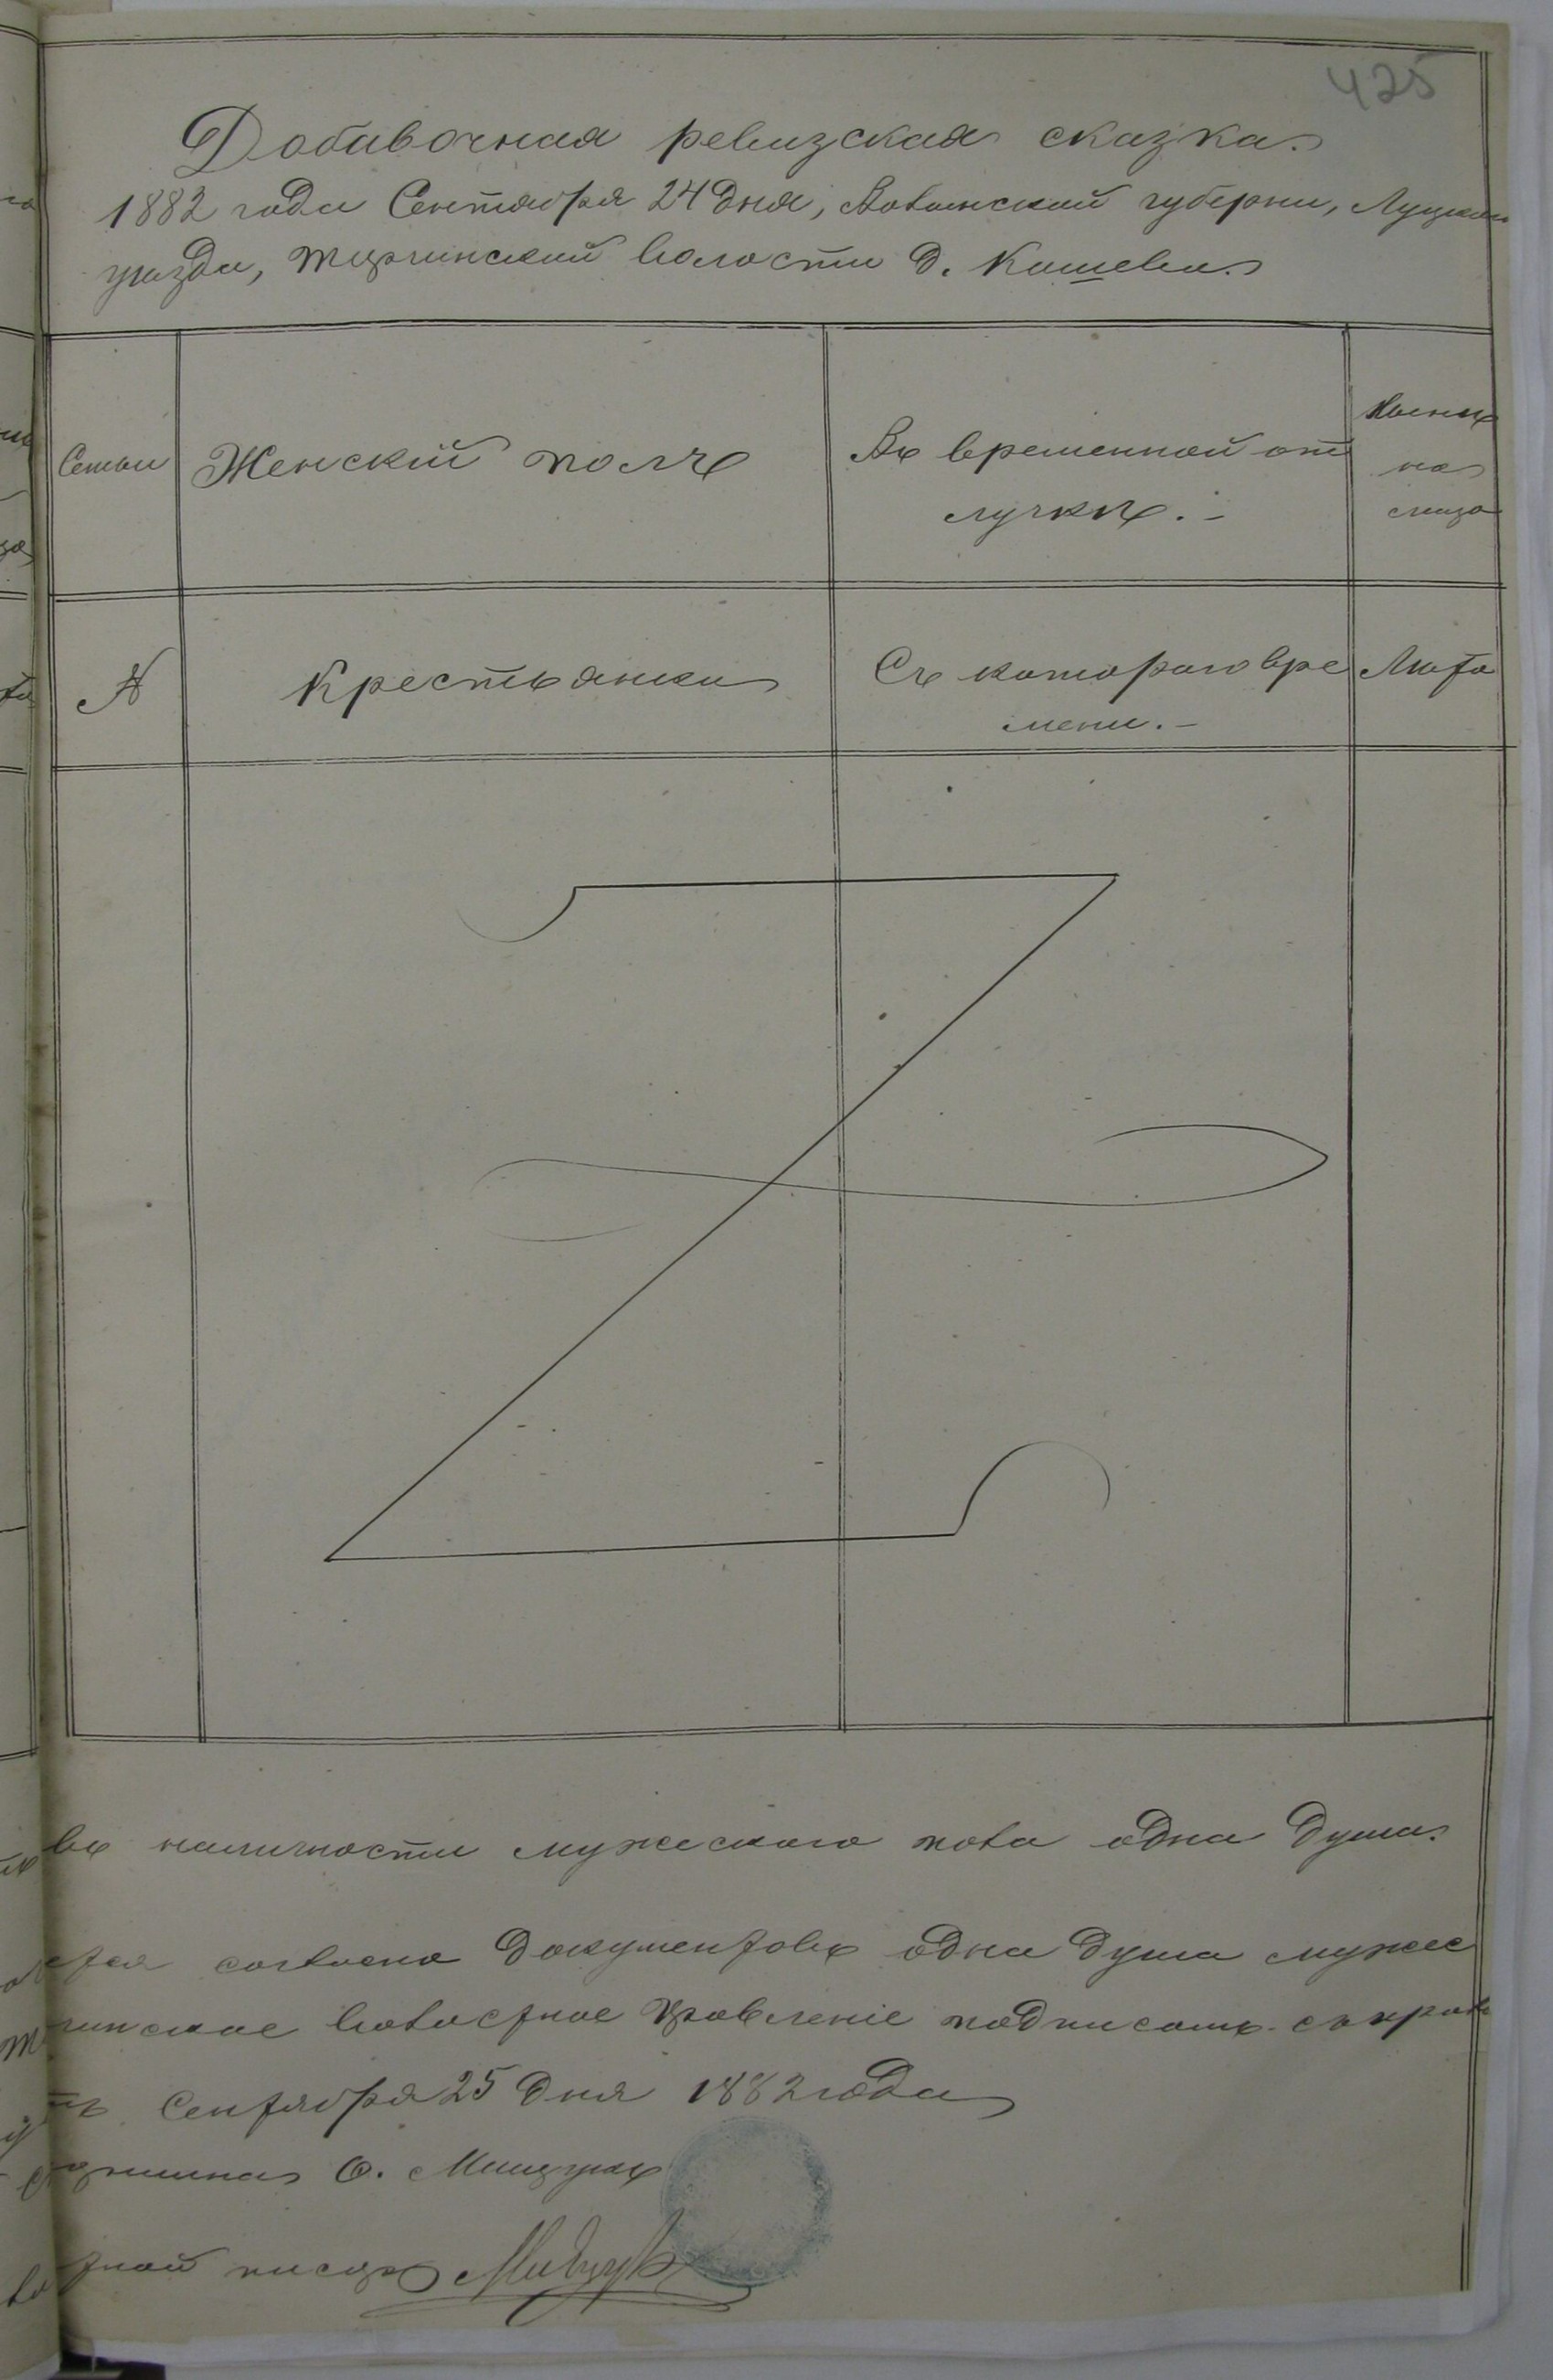 425
Добавочная ревизская сказка.
1882 года Сентября 24 дня, Волынской губерни, Луцкаго
уѣзда, Торчинской волости д. Кошева.
Семьи
Женскій полъ
Въ временной от
лучкѣ. —
Нынѣ
на
лицо
№
Крестьянка
Съ котораго вре
мени. —
Лѣта
въ наличности мужескаго пола одна душа.
согласно документовъ одна душа мужес
чинское волостное правленіе подписомъ
Сентября 25 дня 1882 года
ршина О.
тной писарь